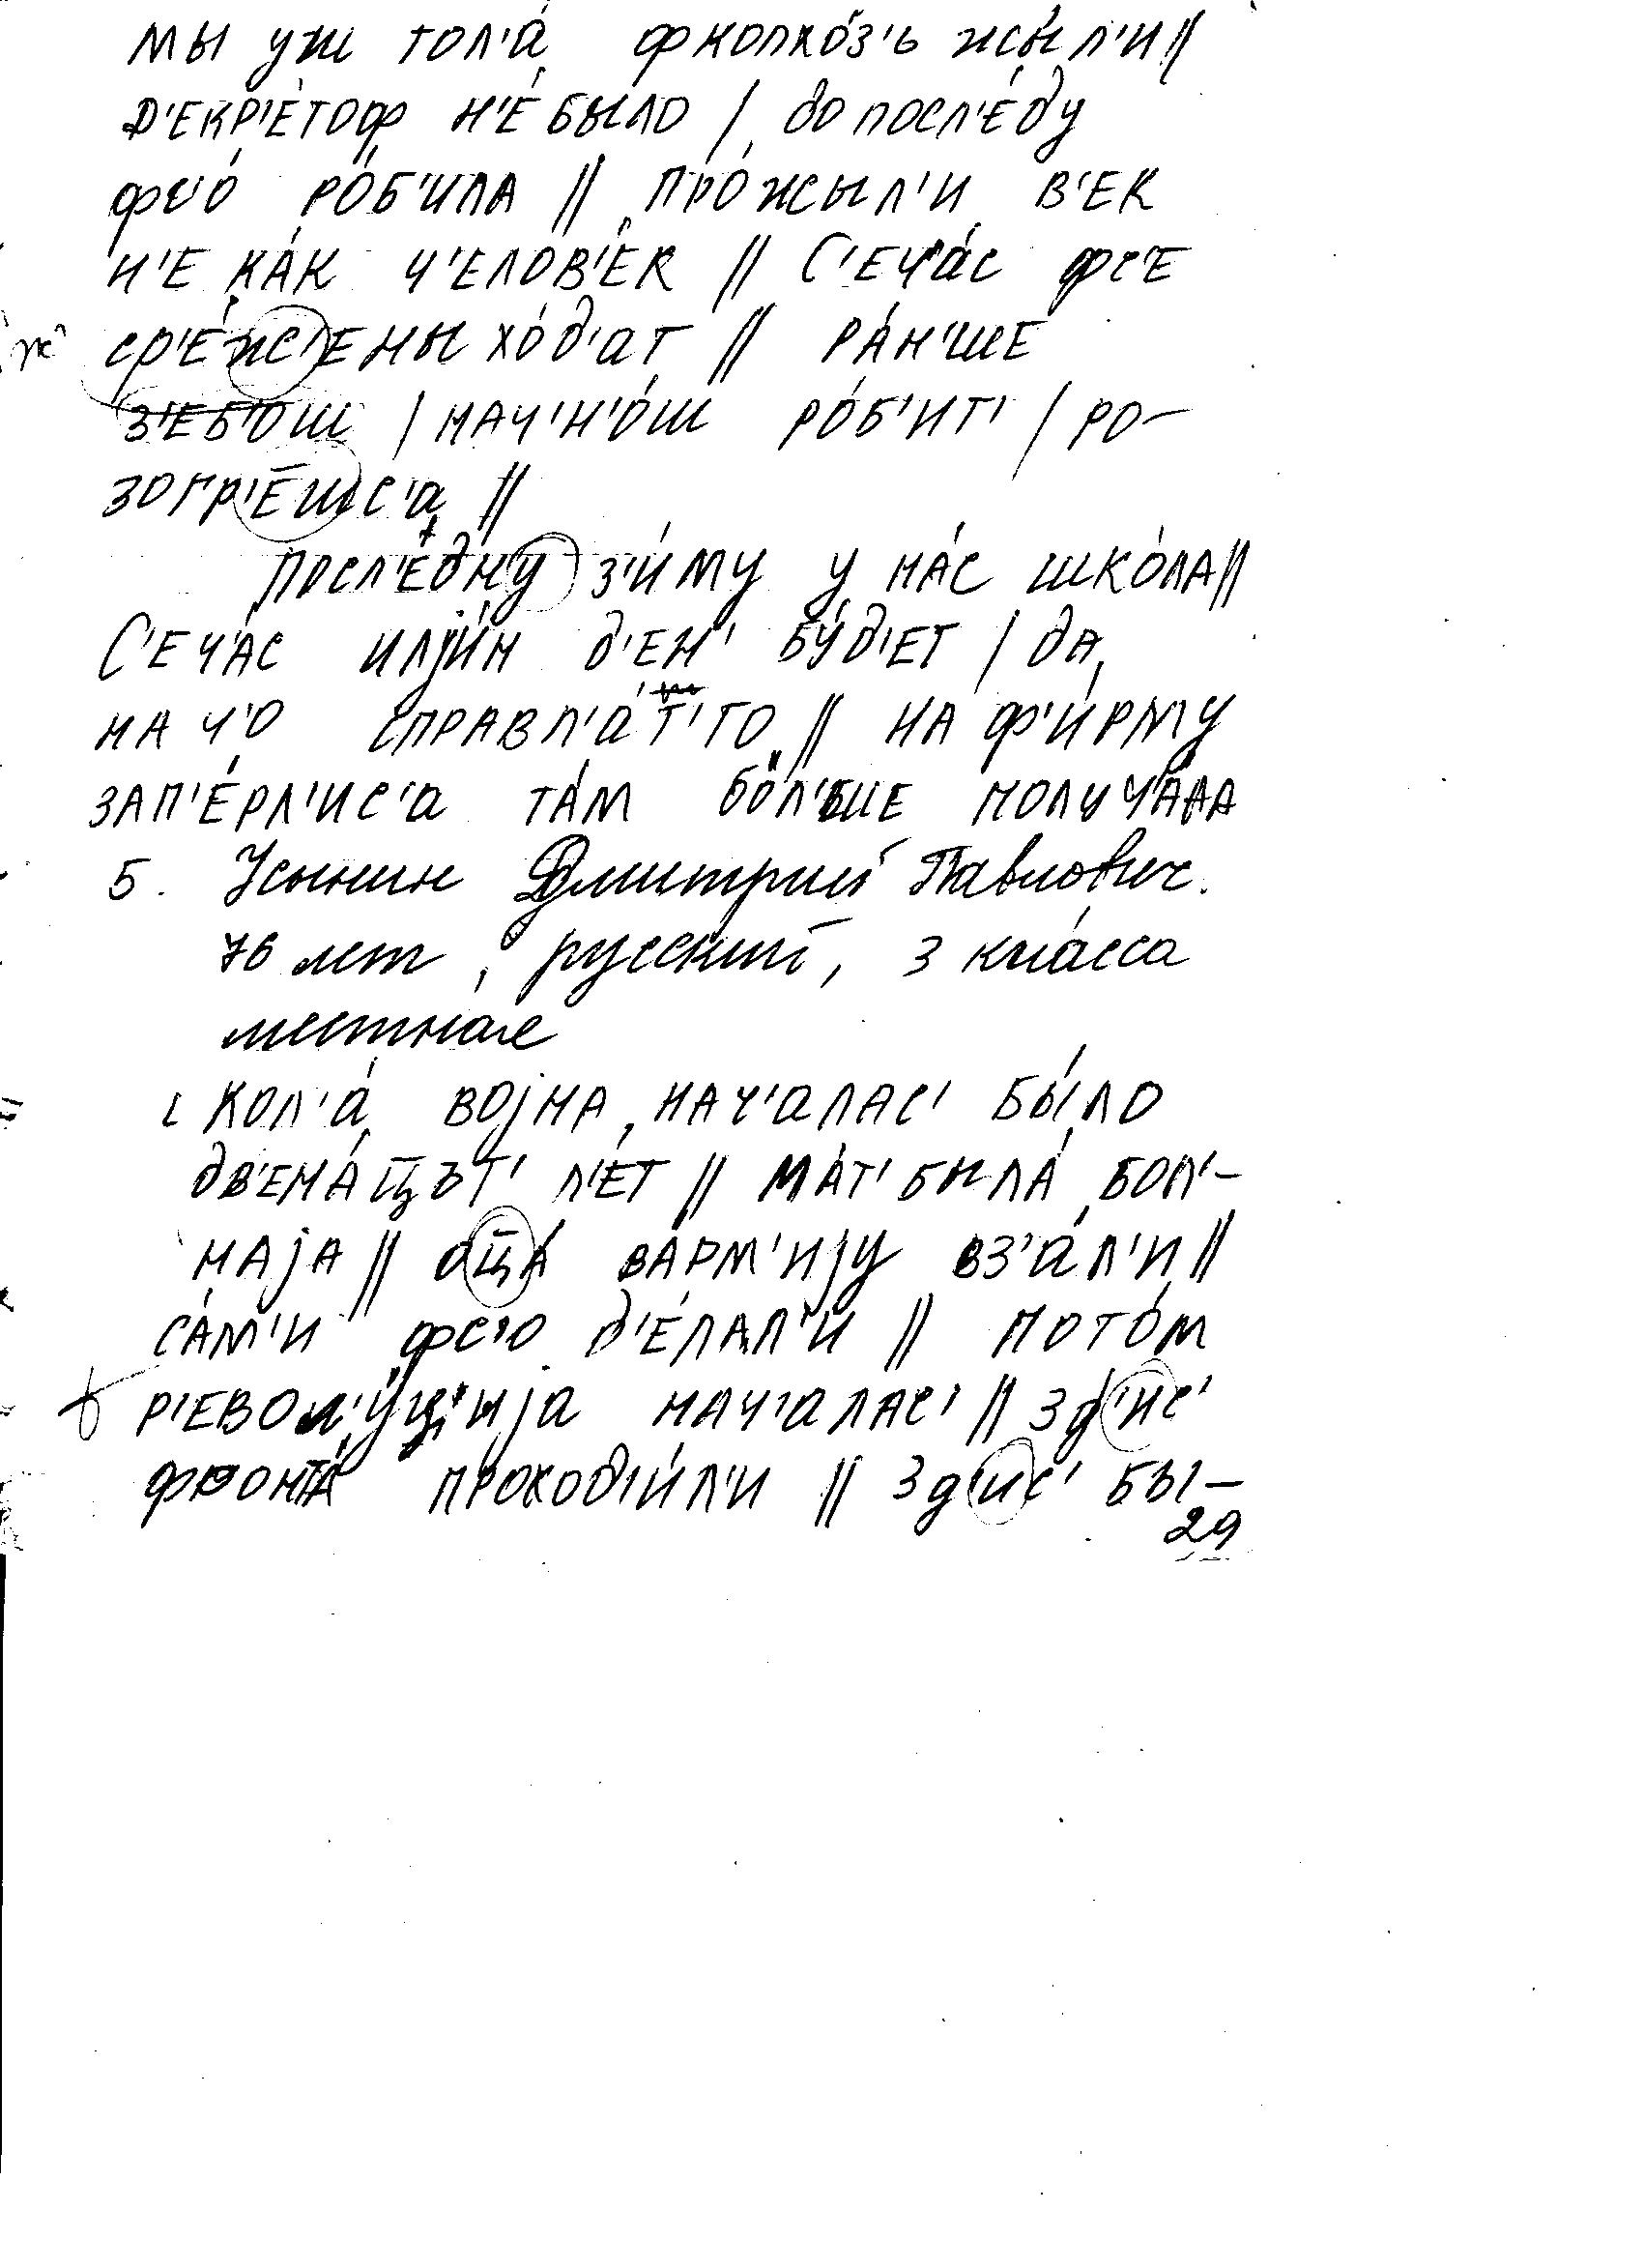 мы уш тол'а́ фколхо́з'ь жы́л'и //
д'екр'е́тоф н'е́ было / до посл'е́ду
фс'о́ ро́б'ила // про́жыл'и в'ек
н'е ка́к ч'елов'е́к // с'еч'а́с фс'е
ср'е́ж'ены хо́д'ат // ра́н'ше
з'еб'о́ш / нач'н'о́ш ро́б'ит' / ро-
зогр'е́шс'а //
посл'е́дну з'и́му у на́с шко́ла //
с'еч'а́с илји́н д'ен' бу́д'ет / да
на ч'о справл'а́т'то // на ф'и́рму
зап'е́рл'ис'а та́м бо́л'ше получ'а́ла
5. Усынин Дмитрий Павлович.
76 лет, русский, 3 класса
местная
кол'а́ војна нач'алас' бы́ло
дв'ена́цът' л'е́т // ма́т' была́ бол'-
наја // оца́ ва́рм'ију вз'а́л'и //
са́м'и фс'о д'е́лал'и // пото́м
р'евол'у́ц'ија нач'алас' // зд'ис'
фронта́ проход'и́л'и // зд'ис' бы-
29
ж'